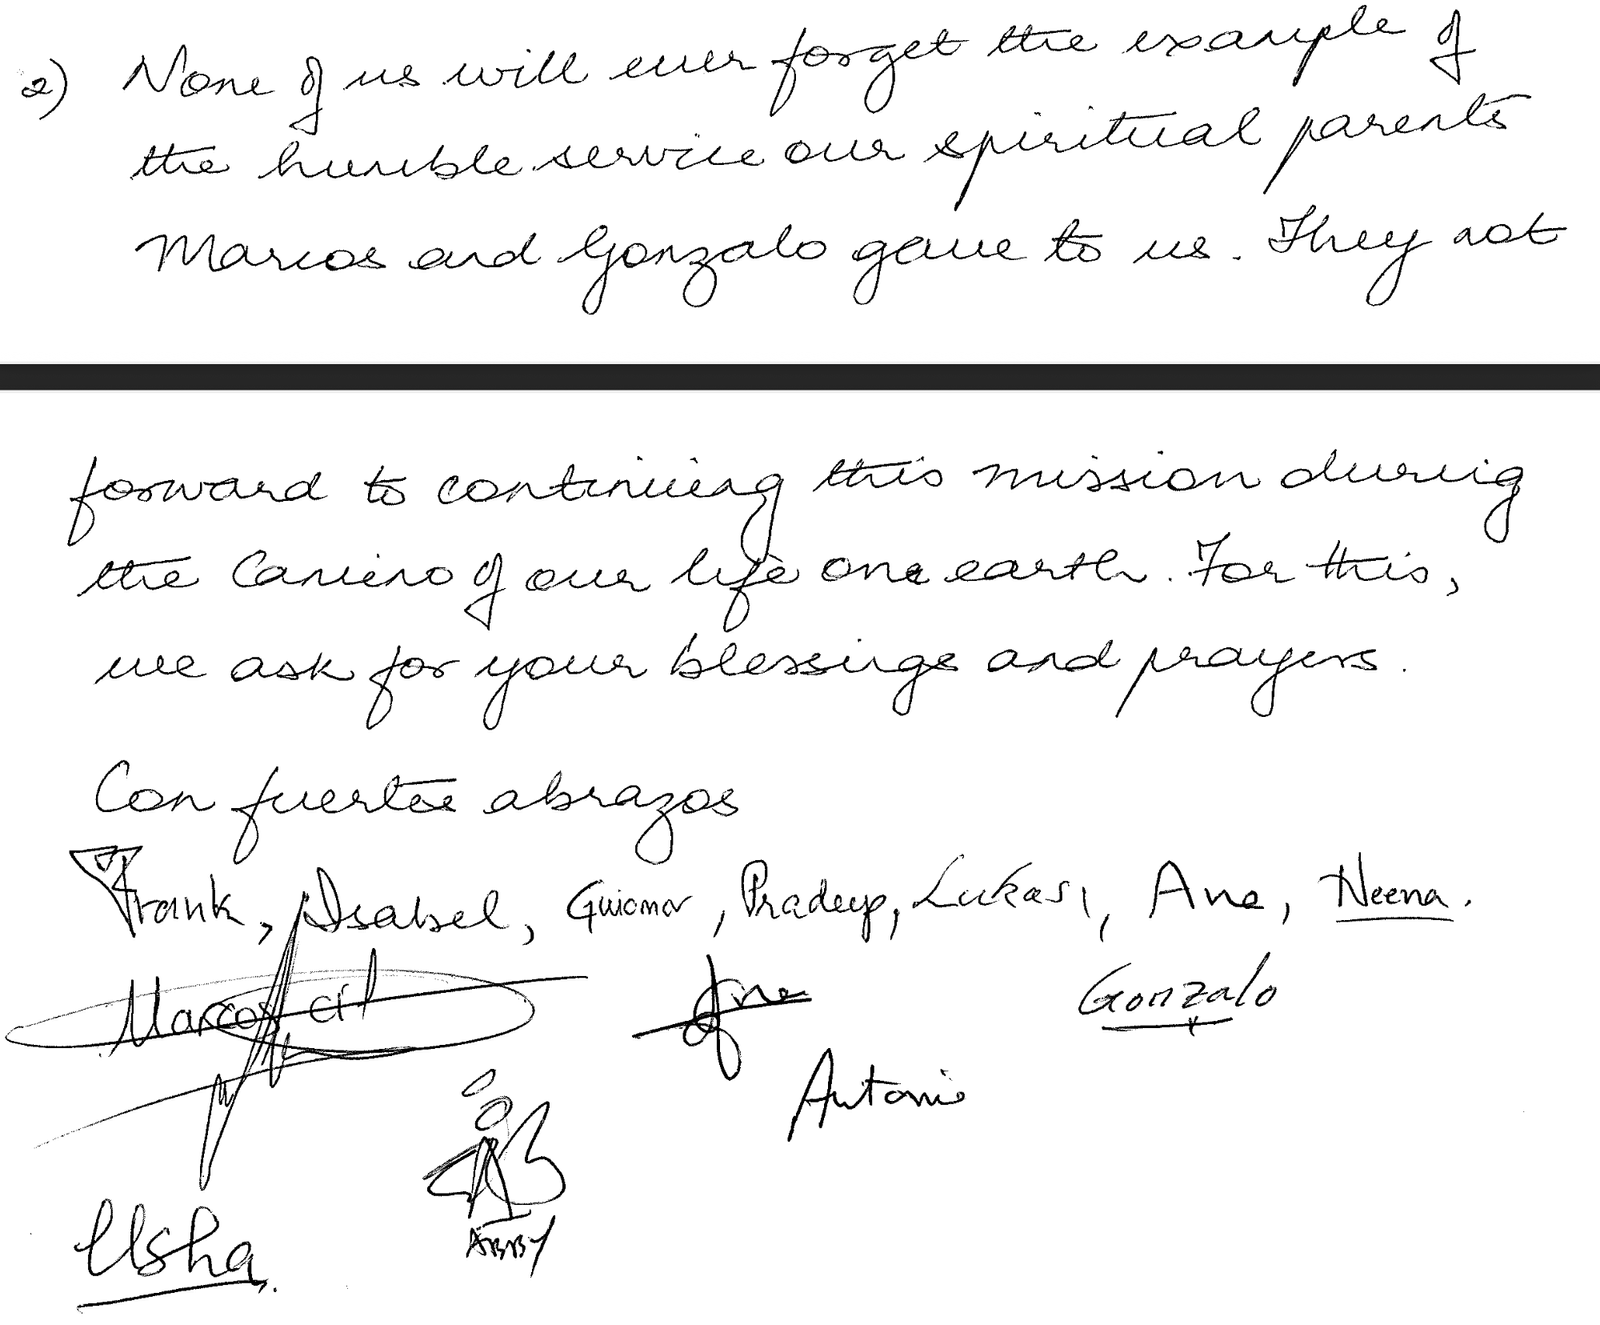 2) None of us will ever forget the example of
the humble service our spiritual parents
Marcos and Gonzalo gave to us. They not
forward to continuing this mission during
the Camino of our life one earth. For this,
we ask for your blessings and prayers.
Con fuertes abrazos
Frank, Isabel, Guiomar, Pradeep, Lukas, Ana, Neena.
Marcos Gonzalo
Antonio
Usha
ABBY